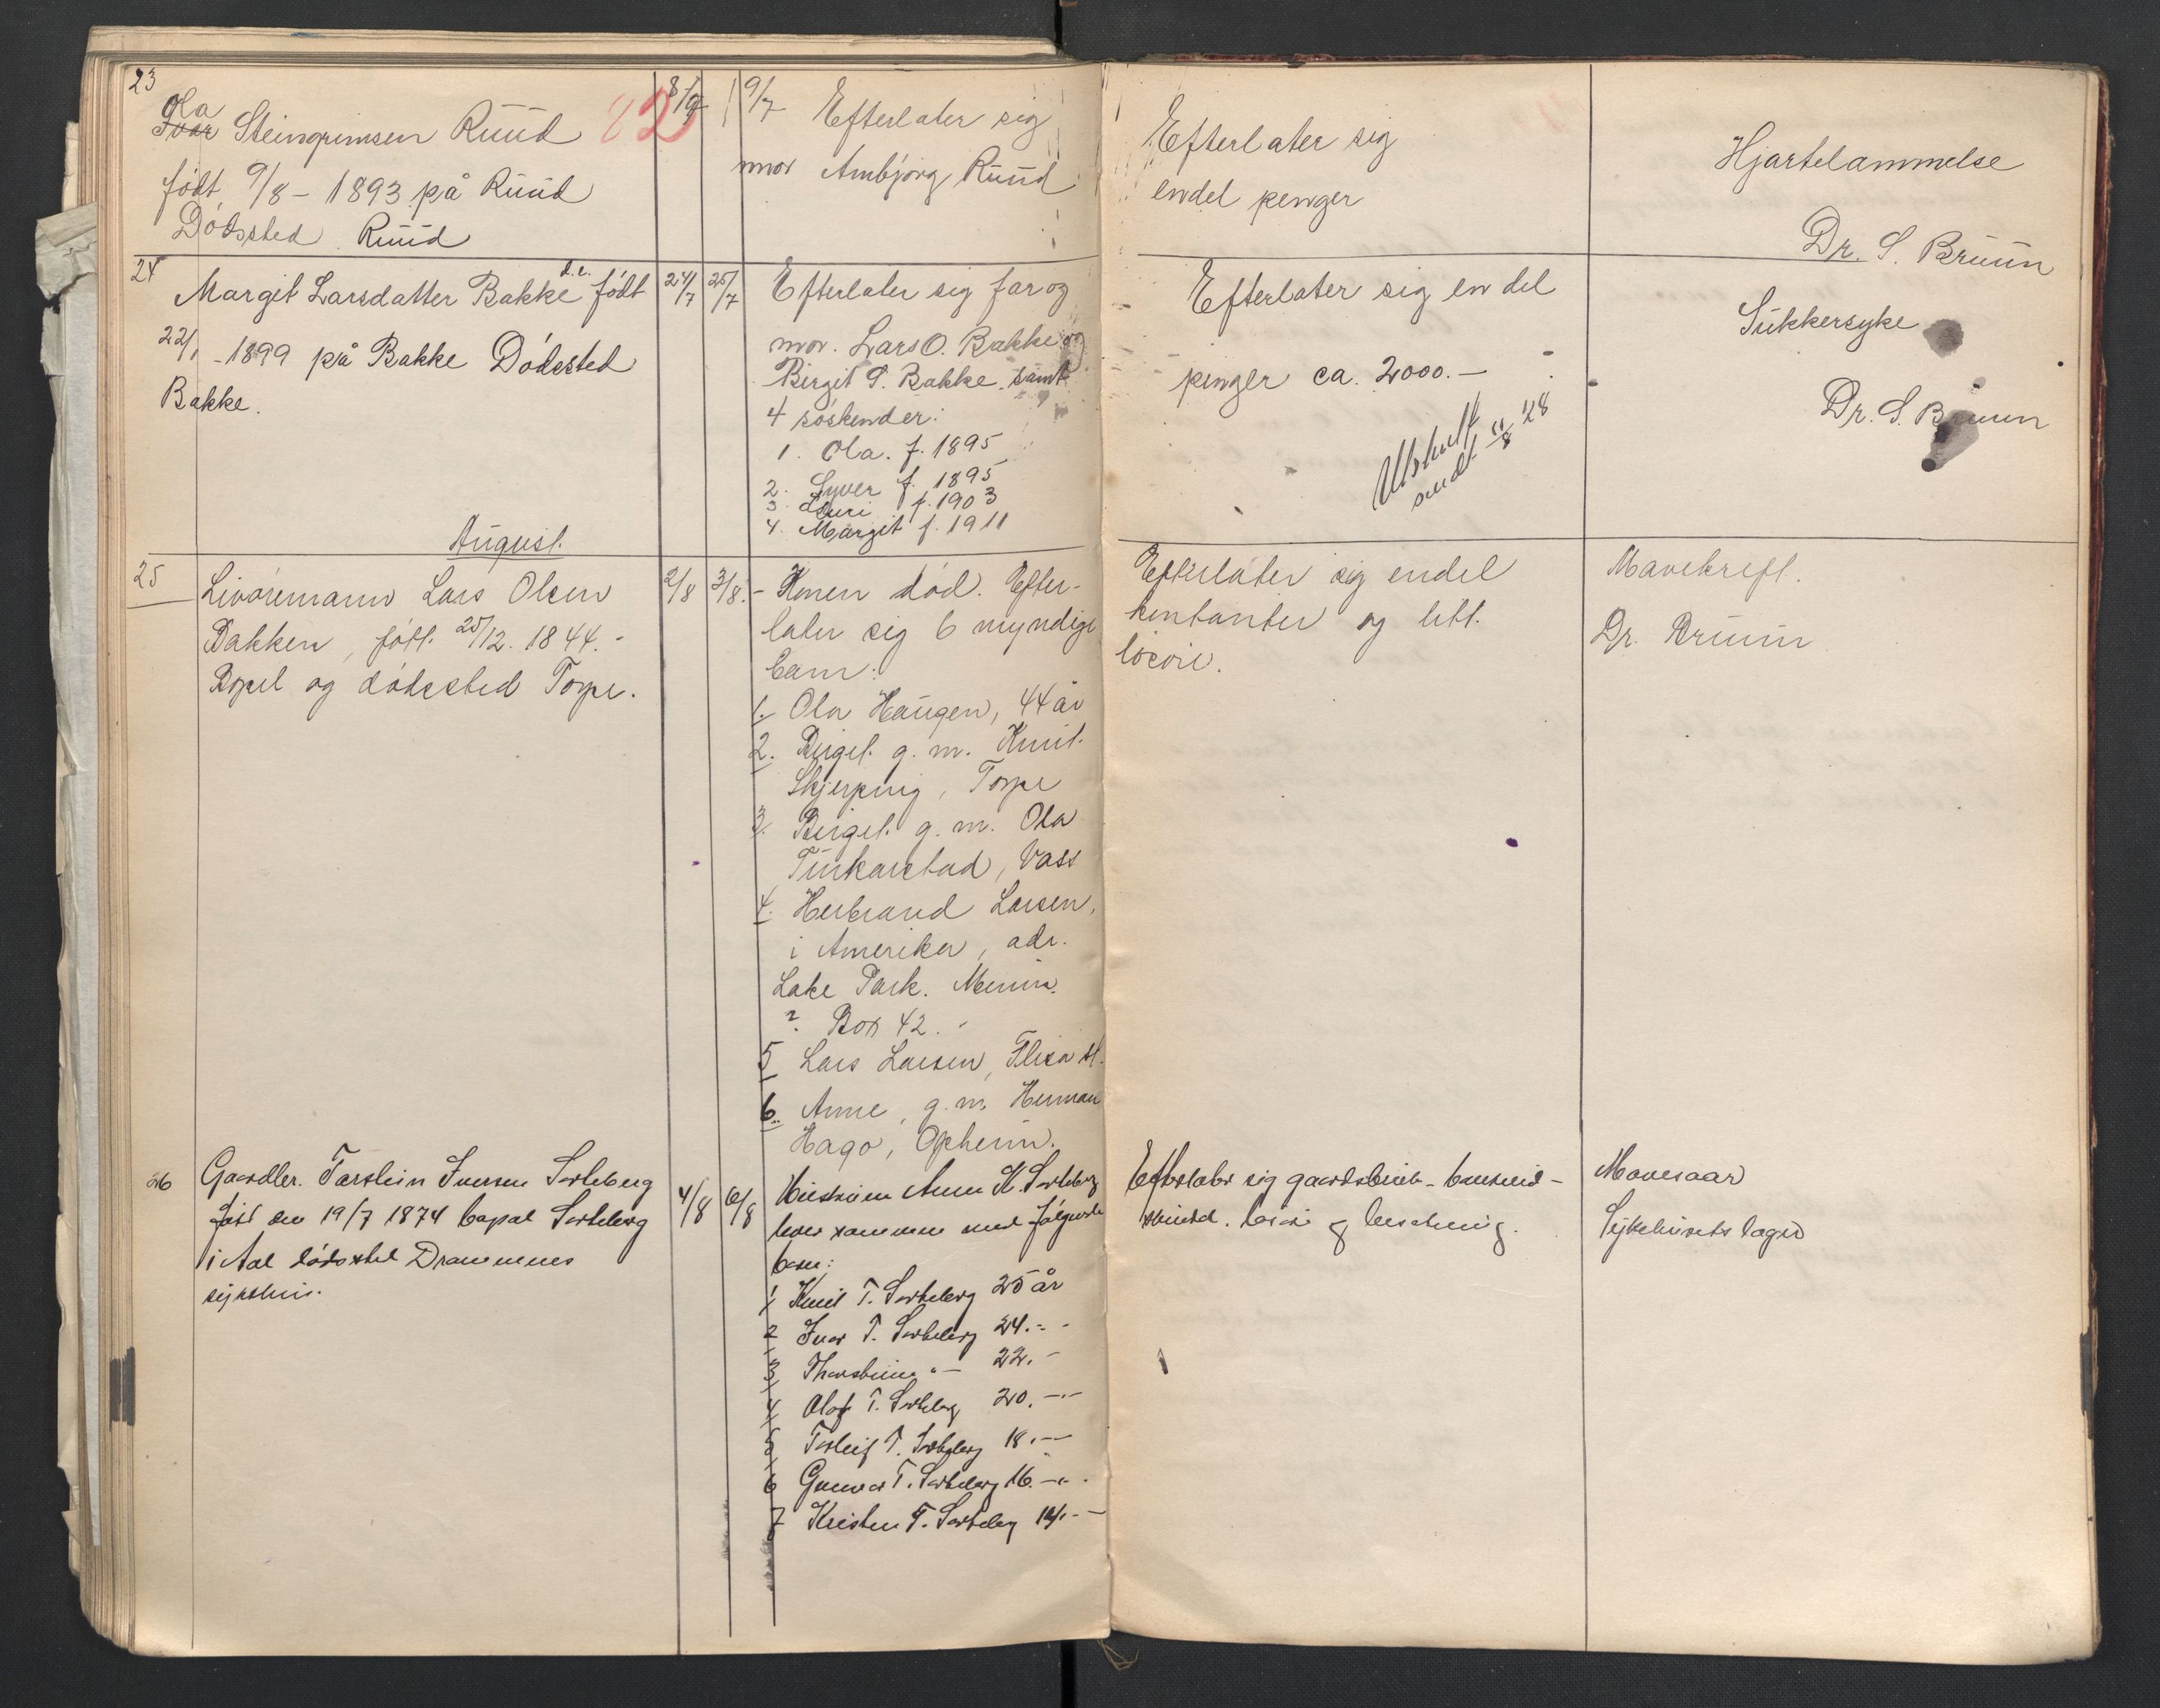 23
Ola
Ivar Steingrimsen Ruud
født 9/8 - 1893 på Ruud
Dödssted Ruud
8/7
9/7
Efterlater sig
mor Ambjörg Ruud
Efterlater sig
endel penger
Hjartelammelse
Dr. S. Bruun
24
Margit Larsdatter Bakke d.e. født
22/1 - 1899 på Bakke Dödssted
Bakke.
24/7
25/7
Efterlater sig far og
mor. Lars O. Bakke og
Birgit S. Bakke samt
4 söskender:
1. Ola. f. 1895
2. Syver f. 1895
3. Guri f. 1903
4. Margit f. 1911
Efterlater sig en del
penger ca. 2000.-
Utskrift
sendt 11/8 28
Sukkersyke
Dr. S. Bruun
August.
25
Livöremann Lars Olsen
Bakken, født 25/12. 1844.-
Bopel og dödssted Torpe.
2/8
3/8.-
Konen död. Efter-
later sig 6 myndige
barn:
1. Ola Haugen, 44 år
2. Birgit g. m. Knut
Skjerping, Torpe
3. Birgit g. m. Ola
Turkarstad, Vats
4. Herbrand Larsen,
i Amerika, adr.
Lake Park. Minn.
? Box 42.-
5 Lars Larsen, Flisa st.
6. Anne, g. m. Herman
Hago, Opheim.
Efterlater sig endel
kontanter og litt
lösöre.
Mavekreft.
Dr. Bruun
26
Gaardbr. Torstein Iversen Sorteberg
født den 19/7 1874 bopæl Sorteberg
i Aal dödssted Drammens
sykehus.
4/8
6/8
Hustruen Anne K. Sorteberg
lever sammen med fölgende
barn:
1 Knut T. Sorteberg 25 år
2 Ivar T. Sorteberg 24.-"-
3 Thorstein -"- 22.-
4 Olaf T. Sorteberg 20.-"-
5 Torleif T. Sorteberg 18.-"-
6 Gunvor T. Sorteberg 16.-"-
7 Kristen T. Sorteberg 14.-"-
Efterlater sig gaardsbruk -
lösöre og besetning.
Mavesaar
Sykehusets læge